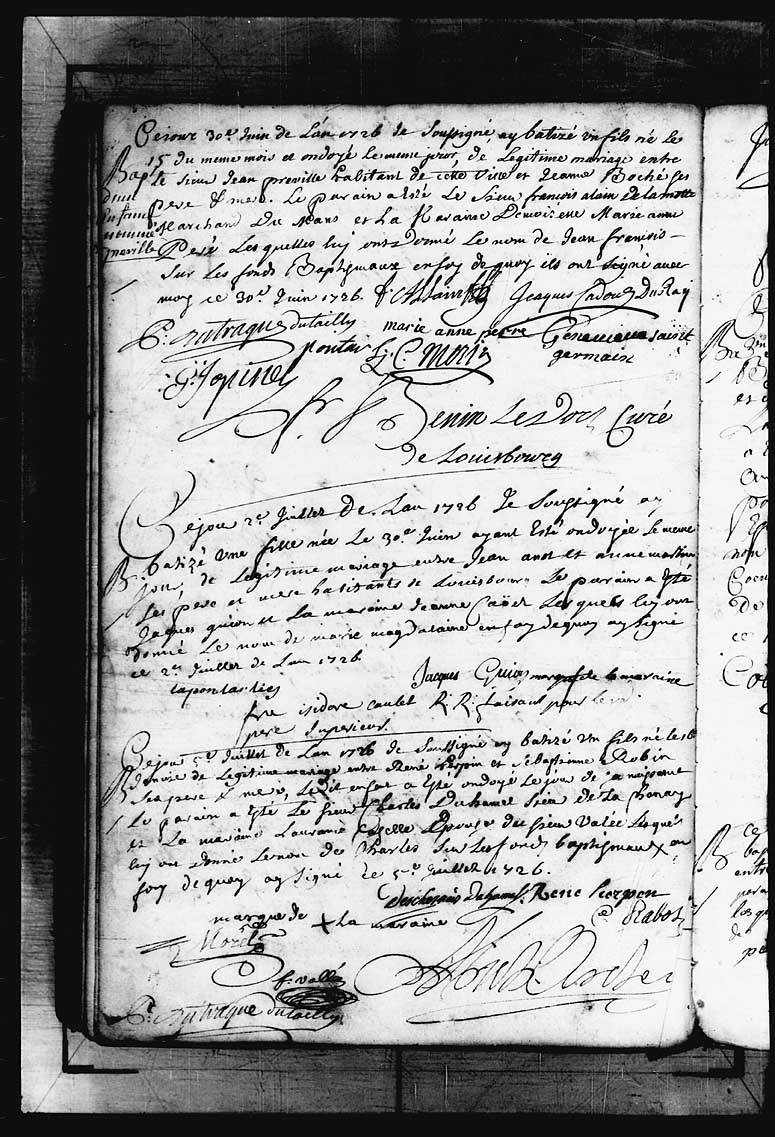 Cejour 30e Juin de L'an 1726 Je Soussigné ay batizé un fils né le
15 du meme mois et ondoyé le meme jour, de Legitime mariage entre
Le sieur Jean preville habitant de cette ville et Jeanne Boché ses
pere et mere. Le parain a esté Le Sieur françois alain de lamotte
Marchand Du Mans et La Maraine Demoiselle Marie anne
Peré Lesquelles luy ont Donné Le nom de Jean François
Sur Les fonds Baptismaux en foy de quoy ils ont signé avec
moy ce 30e Juin 1726.
Bap
d'un
Enfant
nommé
preville
f Allain Jacques Cadou DuRay
P. Dutraque dutailly marie anne perre Genevieve saint
germain
pontar G. C. Morin
Benin Le Dorz Curé
de Louisbourg
Cejour 2e Juillet De Lan 1726 Je Soussigné ay
B batizé une fille née Le 30e Juin ayant Esté ondoyée Le meme
jour, de Legitime mariage entre Jean et anne martin
Ses pere et mere habitants de Louisbourg Le parain a Esté
Jaques guion et La maraine Jeanne Lesquels luy ont
donné Le nom de marie magdalaine en foy de quoy ay signé
ce 2e Juillet de Lan 1726
Jacques Guion marque de la maraine
frre isidore caulet R. R. faisant pour le
pere Superieur.
Cejour 5e Juillet de Lan 1726 Je Soussigné ay batizé un fils né le
B de Legitime mariage entre René et Sebastienne Robin
Sea pere et mere, Ledit enfant a Esté ondoyé Le jour de sa naissance
Le parain a Esté Le sieur Charles Duhamel Sieur de La
et La maraine Laurance Epouse du sieur Valée Lesquels
luy ont Donné Le nom de Charles Sur Les fonds baptismaux en
foy de quoy ay signé ce 5e Juillet 1726.
Duhamel René
marque de + La maraine Rabot
Morel
f. vallée
P. Dutraque dutailly